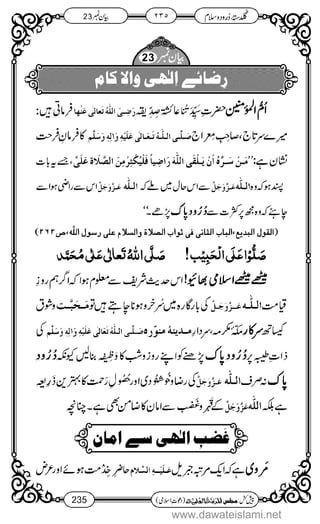 گلدستۂ دُرود و سلام ۲۳۵ بیان نمبر 23
بیان نمبر 23
رضائے الٰہی والا کام
اُمُّ الْمُؤمِنین حضرتِ سَیِّدَتُنا عائشہ صِدِّیقہ رَضِیَ اللّٰہُ تَعَالٰی عَنْہَا فرماتی ہیں:
میرے سرتاج، صاحبِ معراج صَلَّی اللّٰہُ تَعَالٰی عَلَیْہِ وَاٰلِہٖ وَسَلَّم کا فرمانِ فرحت
نشان ہے: ’’مَنْ سَرَّہٗ اَنْ یَلْقَی اللّٰہَ رَاضِیاً فَلْیُکْثِرْ مِنَ الصَّلَاۃِ عَلَیَّ، جسے یہ بات
پسند ہو کہ وہ اللّٰہ عَزَّوَجَلَّ سے اس حال میں ملے کہ اللّٰہ عَزَّوَجَلَّ اس سے راضی ہو اسے
چاہئے کہ وہ مجھ پر کثرت سے دُرُودِ پاک پڑھے۔‘‘
(القول البدیع،الباب الثانی فی ثواب الصلاۃ والسلام علی رسول اللّٰہ،ص۲۶۲)
صَلُّوْا عَلَی الْحَبِیْب! صَلَّی اللّٰہُ تَعَالٰی عَلٰی مُحَمَّد
میٹھے میٹھے اسلامی بھائیو! اس حدیث شریف سے معلوم ہوا کہ اگر ہم روزِ
قیامت اللّٰہ عَزَّوَجَلَّ کی بارگاہ میں سُرخرو ہونا چاہتے ہیں تو مَحَبَّت و شوق
کیساتھ سرکارِ مکۂ مکرمہ، سردارِ مدینۂ منورہ صَلَّی اللّٰہُ تَعَالٰی عَلَیْہِ وَاٰلِہٖ وَسَلَّم کی
ذاتِ طیبہ پر دُرُودِ پاک پڑھنے کو اپنے روز و شب کا وظیفہ بنالیں کیونکہ دُرُودِ
پاک نہ صرف اللّٰہ عَزَّوَجَلَّ کی رضا و خوشنودی اور حُصُولِ رَحْمت کا بہترین ذَرِیعہ
ہے بلکہ اللّٰہ عَزَّوَجَلَّ کے قہر و غَضَب سے امان کا ضامن بھی ہے۔ چنانچہ
غضبِ الٰہی سے امان
مَروی ہے کہ ایک مرتبہ جبریل عَلَیْہِ السَّلَام حاضرِ خدمت ہوئے اور عرض
235 پیش کش: مجلس المدینۃ العلمیۃ (دعوتِ اسلامی)
www.dawateislami.net